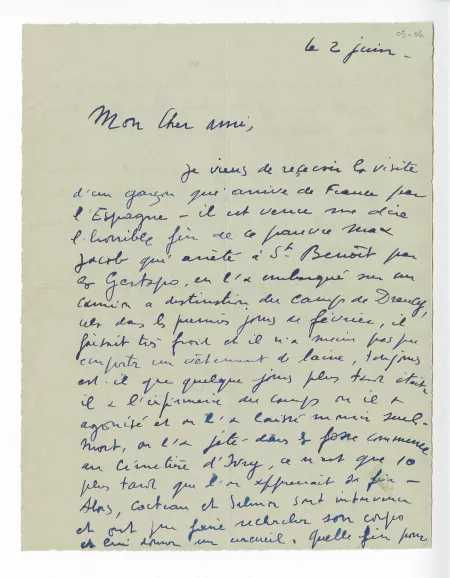 05-06
le 2 juin -
Mon Cher ami,
Je viens de recevoir la visite
d'un garçon qui arrive de France par
l'Espagne - il est venu me dire
l'horrible fin de ce pauvre Max
Jacob qui arrêté à St Benoît par
la Gestapo, on l'a embarqué sur un
camion a destination du camp de Drancy,
dans les premiers jours de février, il
faisait très froid et il n'a même pas pu
emporter un vêtement de laine, toujours
est-il que quelque jours plus tard était
il a l'infirmerie du camp où il a
agonisé et on l'a laissé mourir seul -
Mort, on l'a jeté dans la fosse commune
au Cimetière d'Ivry, ce n'est que 10
plus tard que l'on apprenait sa fin -
Alors, Cocteau et Salmon sont intervenus
et ont pu faire rechercher son corps
et lui donner un cercueil. Quelle fin pour